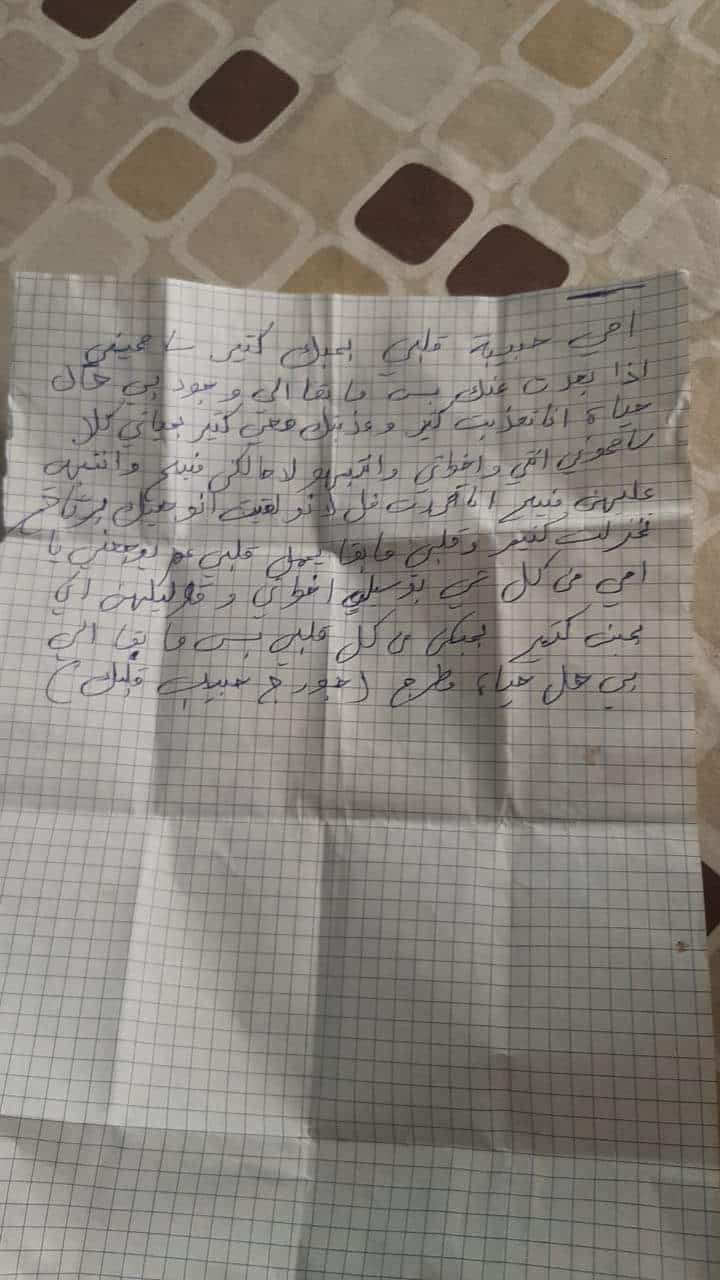 امي حبيبة قلبي بحبك كتير سامحيني
اذا بعدت عنك بس ما بقا الي وجود بي حال
حياة انا تعذبت كتير وعذبتك معي كتير بحياتي كلا
سامحوني انتي واخواتي وانتبهو لا حالكن منيح وانتبه
عليهن منيح انا قررت فل لانو لقيت انو هيك برتاح
كتير وقلبي ما بقا يحمل قلبي عم يوجعني يا
امي من كل شي بوسيلي اخواتي وقوليلهن اني
بحبن كتير بحبكن من كل قلبي بس ما بقا الي
بي حل حياة مطرح (جورج حبيب قلبك)